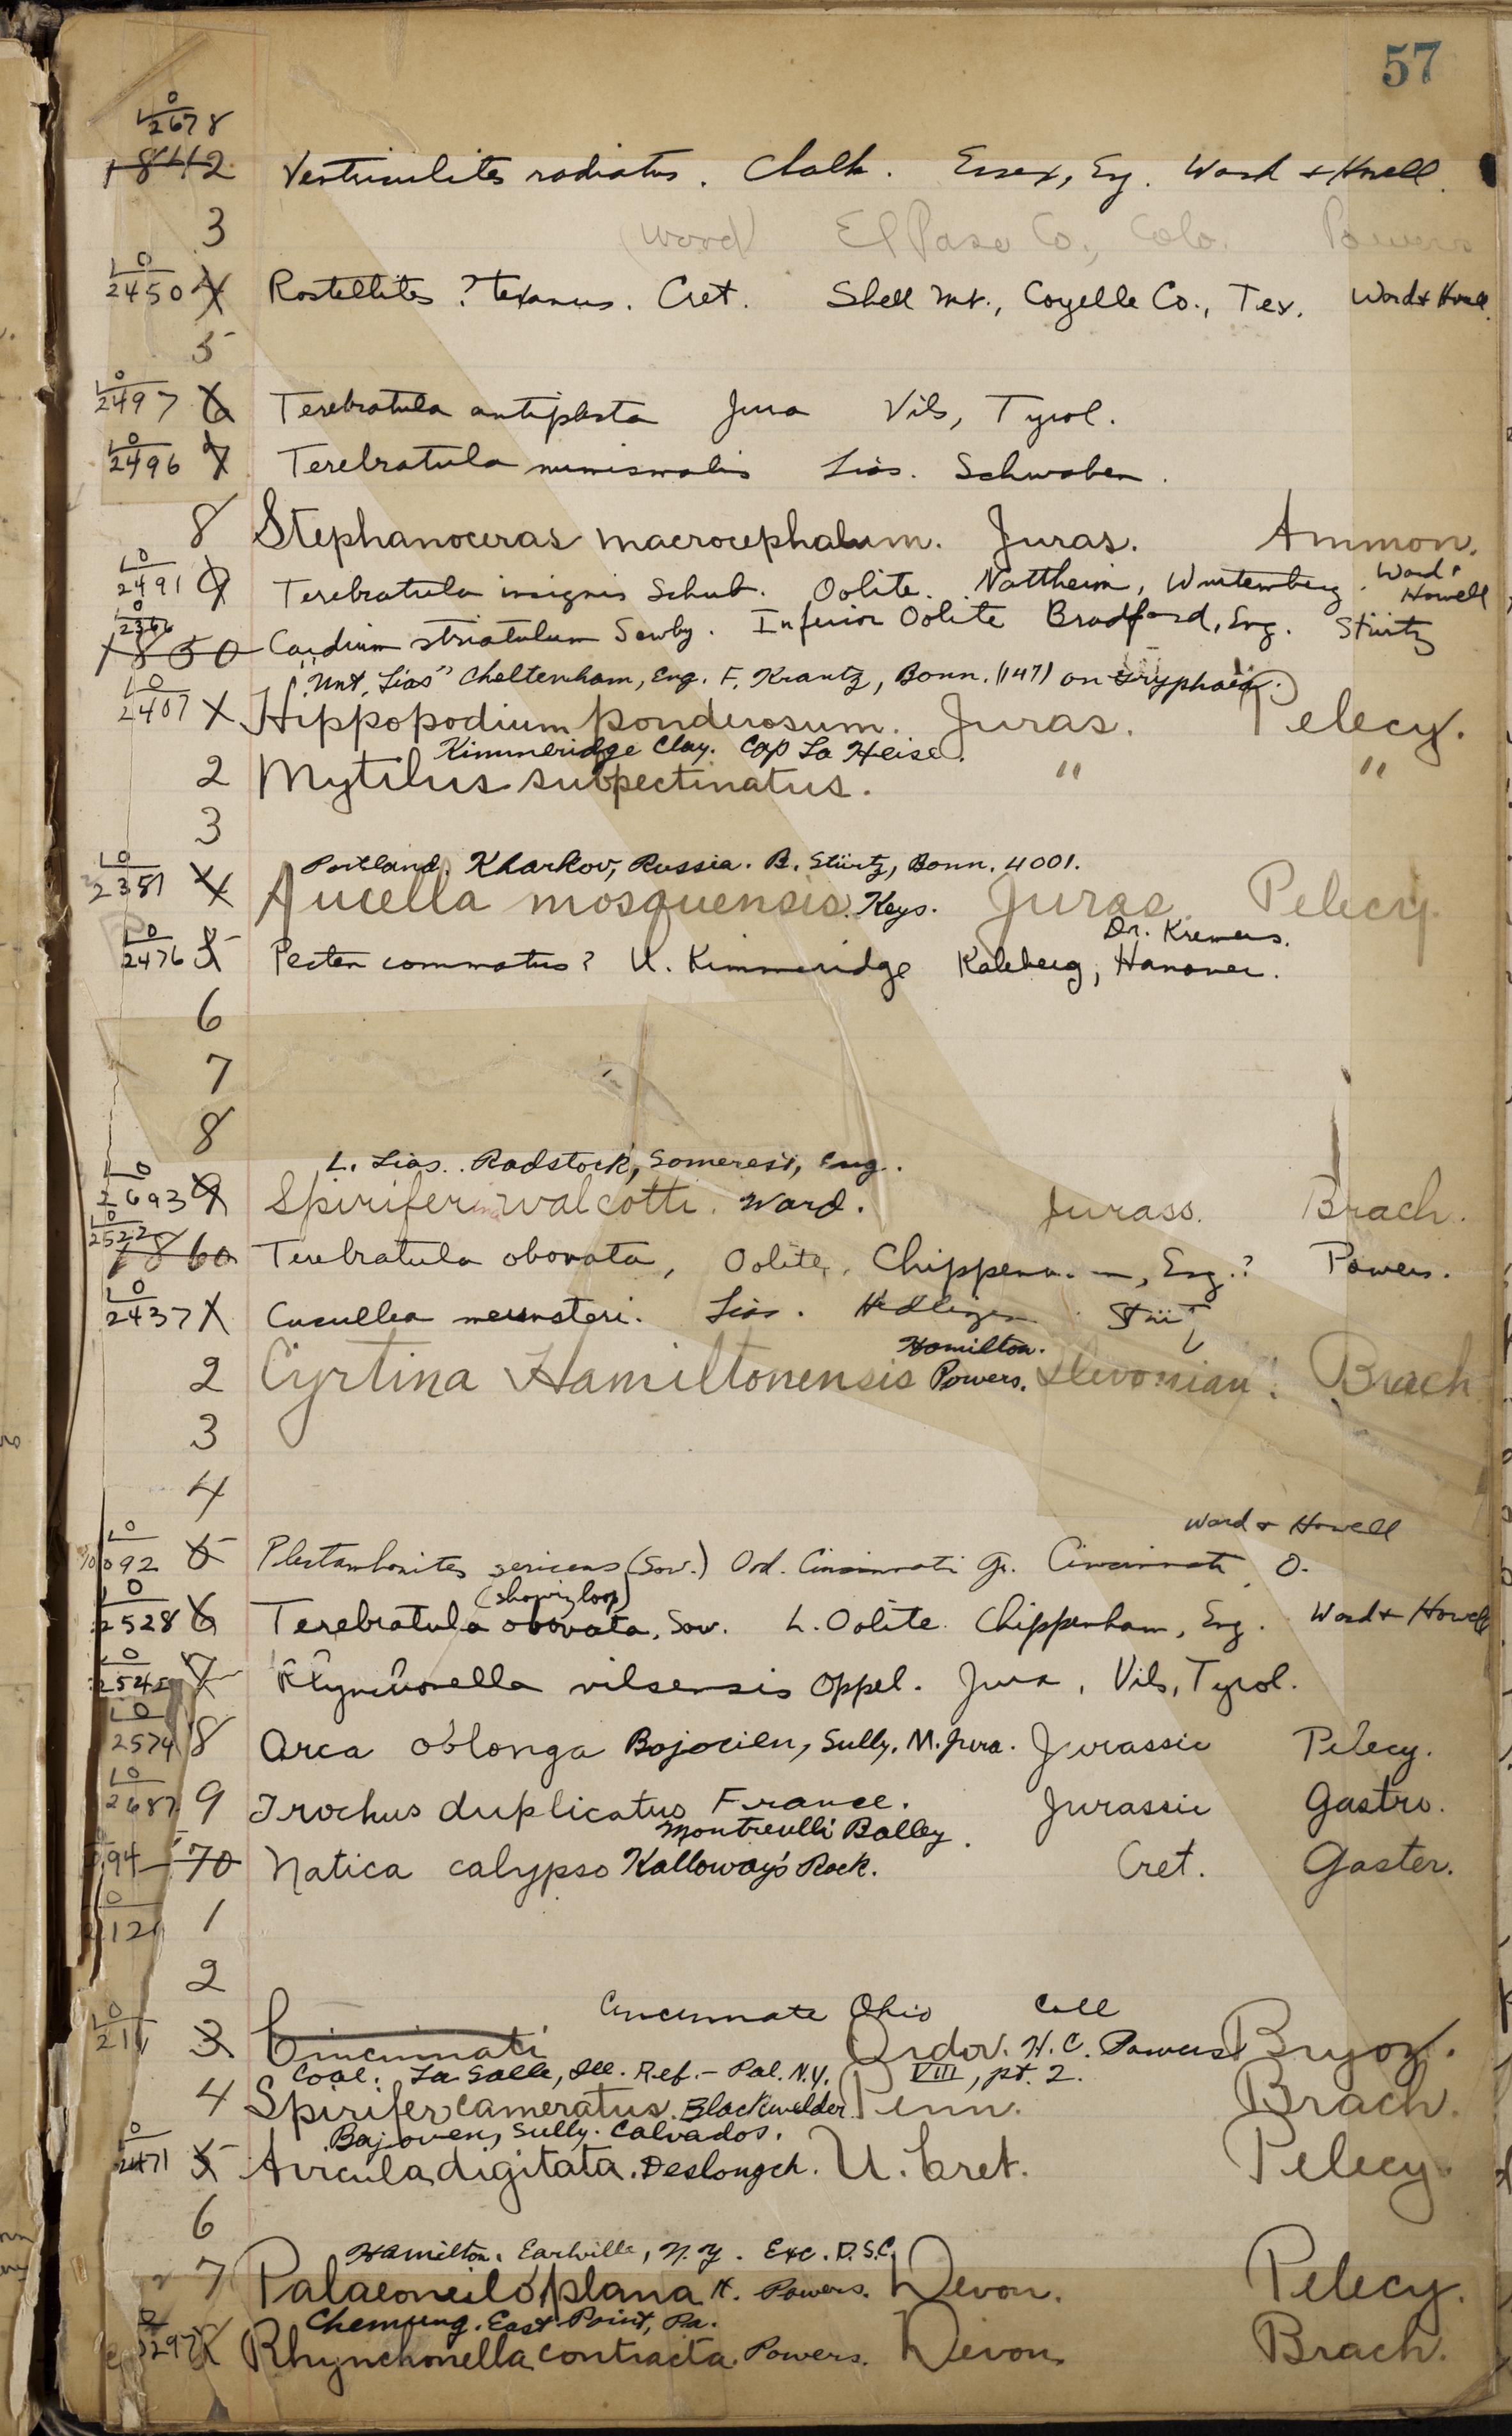 57
0
2678
1842 Ventriculites radiatus. Chalk. Essex, Eng. Ward & Howell.
3 (Wood) El Paso Co., Colo. Powers
0
2450 4 Rostellites ? texanus. Cret. Shell Mt., Coyelle Co., Tex. Ward & Howell.
5
0
2497 6 Terebratula antiplecta Jura Vils, Tyrol.
0
2496 7 Terebratula numismalis Lias. Schwaben.
8 Stephanoceras macrocephalum. Juras. Ammon.
0
2491 9 Terebratula insignis Schub. Oolite. Nattheim, Wurtemberg. Ward & Howell
0
2366
1850 Cardium striatulum Sowby. Inferior Oolite Bradford, Eng. Stürtz
("Unt. Lias" Cheltenham, Eng. F. Krantz, Bonn. (147) on Gryphaea.)
0
2407 X Hippopodium ponderosum. Juras. Pelecy.
Kimmeridge Clay. Cap La Heise.
2 Mytilus subpectinatus. " "
3
Portland. Kharkov, Russia. B. Stürtz, Bonn. 4001.
0
2381 4 Aucella mosquensis. Keys. Juras. Pelecy.
Dr. Kremers.
0
2476 5 Pecten commatus? U. Kimmeridge Kaleberg, Hanover.
6
7
8
L. Lias. Radstock, Somerest, Eng.
0
2693 9 Spirifer walcotti. Ward. Jurass. Brach.
0
2522
1860 Terebratula obovata, Oolite, Eng.? Powers.
0
2437 X Cucullea muensteri. Lias.
Hamilton.
2 Cyrtina Hamiltonensis Powers. Devonian. Brach
3
4
Ward & Howell
0
092 5 Plectambonites sericeus (Sow.) Ord. Cincinnati Gr. Cincinnati, O.
(showing loop)
0
2528 6 Terebratula obovata, Sow. L. Oolite. Chippenham, Eng. Ward & Howell
0
2545 7 Rhynchonella vilsensis Oppel. Jura, Vils, Tyrol.
0
2574 8 Arca oblonga Bajocien, Sully, M. Jura. Jurassic Pelecy.
0
2687 9 Trochus duplicatus France. Jurassic Gastro.
Montreulli Balley.
94 70 Natica calypso Kalloway's Rock. Cret. Gaster.
0
121 1
2
Cincinnate Ohio Coll
0
211 3 Cincinnati Ordov. H. C. Powers Bryoz.
Coal. La Salle, Ill. Ref. - Pal. N.Y. VIII, pt. 2.
4 Spirifer cameratus. Blackwelder. Penn. Brach.
Bajoven, Sully. Calvados.
0
2471 5 Avicula digitata. Deslongch. U. Cret. Pelecy.
6
Hamilton. Earlville, N.Y. Exc. D.S.C.
7 Palaeoneilo plana H. Powers. Devon. Pelecy.
Chemung. East Point, Pa.
0
297 8 Rhynchonella contracta Powers. Devon. Brach.